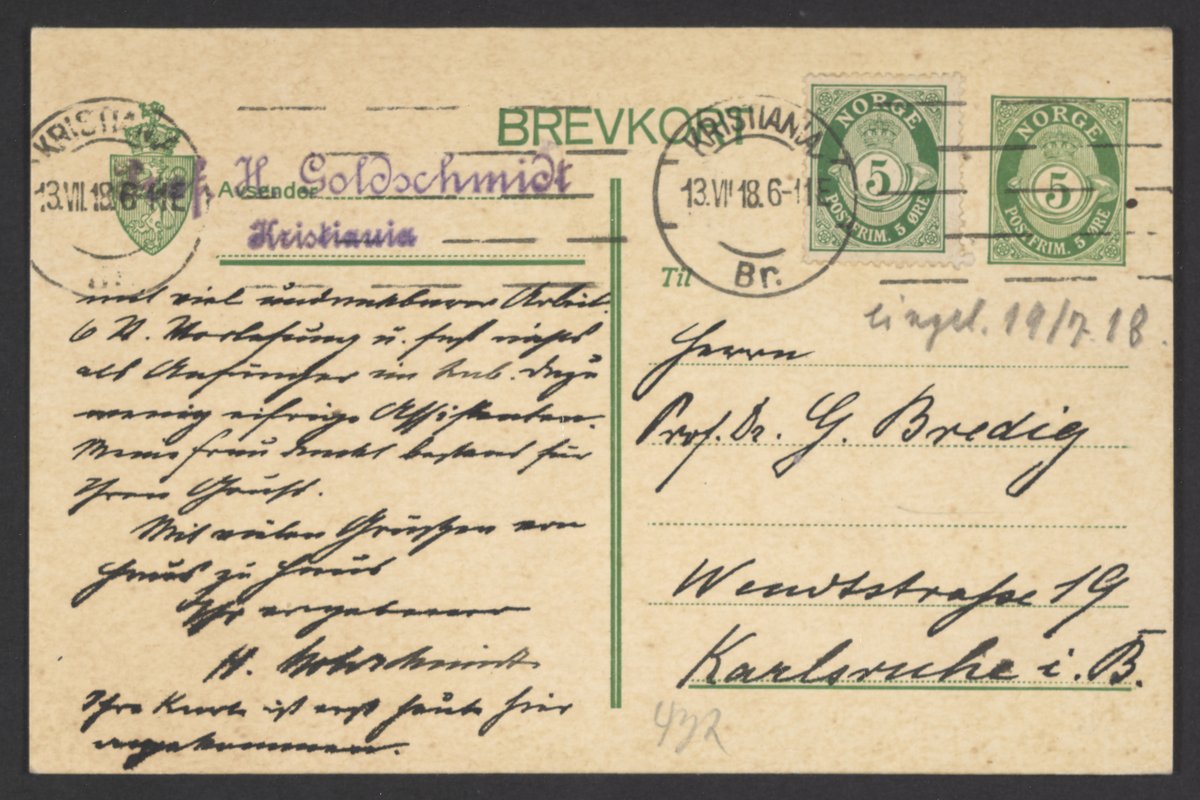 BREVKORT
KRISTIANIA
13.VII.18.6-11E
Prof. H. Goldschmidt
Avsender
Kristiania
KRISTIANIA
13.VII.18.6-11E
Br.
NORGE
5
POSTFRIM. 5 ØRE
NORGE
5
POSTFRIM. 5 ØRE
Til
eingel. 19/7.18.
Herrn
Prof. Dr. G. Bredig
Wendtstraße 19
Karlsruhe i. B.
mit viel undankbarer Arbeit.
6 St. Vorlesung u. fast nichts
als Anfänger im Lab. Dazu
wenig eifrige Assistenten.
Meine Frau dankt bestens für
Ihren Gruß.
Mit vielen Grüßen von
Haus zu Haus
Ihr ergebener
H. Goldschmidt
Ihre Karte ist erst heute hier
angekommen.